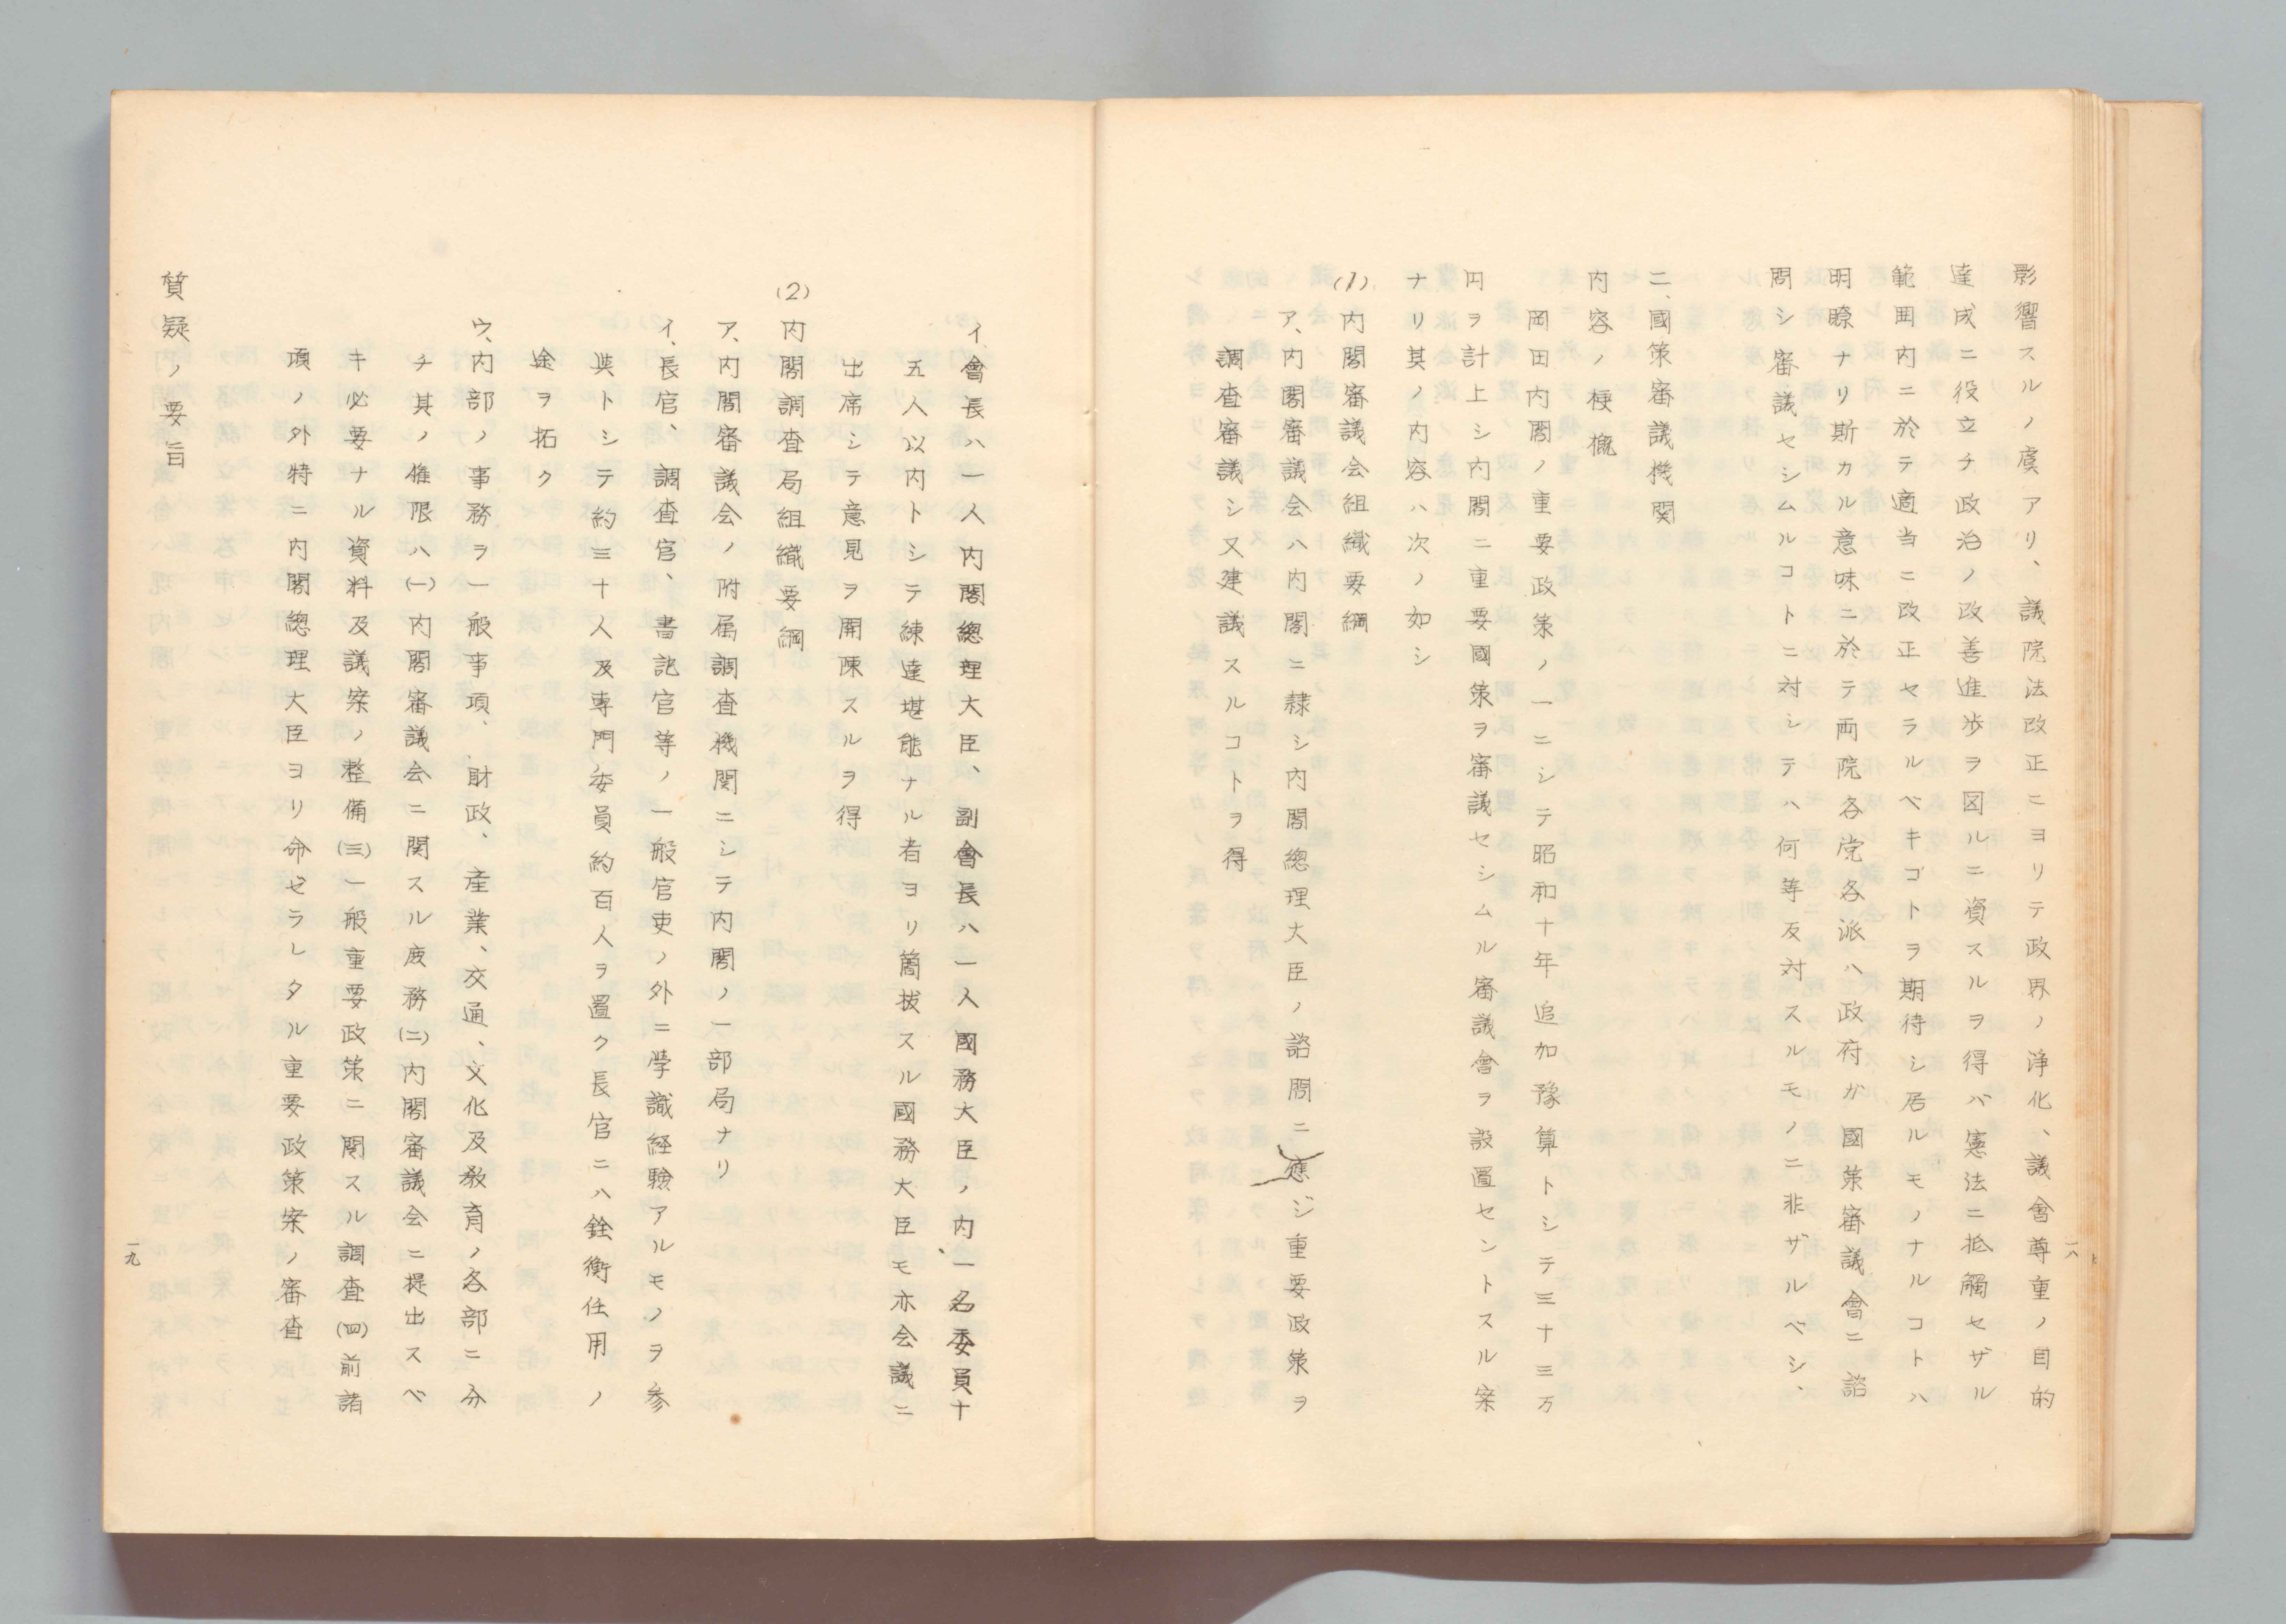 影響スルノ虞アリ、議院法改正ニヨリテ政界ノ浄化、議會尊重ノ目的
達成ニ役立チ政治ノ改善進歩ヲ図ルニ資スルヲ得バ憲法ニ抵觸セザル
範囲内ニ於テ適当ニ改正セラルベキゴトヲ期待シ居ルモノナルコトハ
明瞭ナリ斯カル意味ニ於テ両院各党各派ハ政府か國策審議會ニ諮
問シ審議セシムルコトニ対シテハ何等反対スルモノニ非ザルベシ、
二、國策審議機関
内容ノ梗概
岡田内閣ノ重要政策ノ一ニシテ昭和十年追加豫算トシテ三十三万
円ヲ計上シ内閣ニ重要國策ヲ審議セシムル審議會ヲ設置セントスル案
ナリ其ノ内容ハ次ノ如シ
(1)内閣審議会組織要綱
ア、内閣審議会ハ内閣ニ隸シ内閣總理大臣ノ諮問ニ應ジ重要政策ヲ
調査審議シ又建議スルコトヲ得
一八
イ會長ハ一人内閣總理大臣、副會長ハ一人國務大臣ノ内、一名委員十
五人以内トシテ練達堪能ナル者ヨリ簡拔スル國務大臣モ亦会議ニ
出席シテ意見ヲ開陳スルヲ得
(2)内閣調査局組織要綱
ア、内閣審議会ノ附属調査機関ニシテ内閣ノ一部局ナリ
イ、長官、調査官、書記官等ノ一般官吏ノ外ニ学識経験アルモノヲ参
與トシテ約三十人及専門委員約百人ヲ置ク長官ニハ銓衡任用ノ
途ヲ拓ク
ウ、内部ノ事務ヲ一般事項、財政、産業、交通、文化及教育ノ各部ニ分
チ其ノ権限ハ(一)内閣審議会ニ関スル庶務(二)内閣審議会ニ提出スベ
キ必要ナル資料及議案ノ整備(三)一般重要政策ニ関スル調査(四)前諸
項ノ外特ニ内閣總理大臣ヨリ命ゼラレタル重要政策案ノ審査
質疑ノ要旨
一九